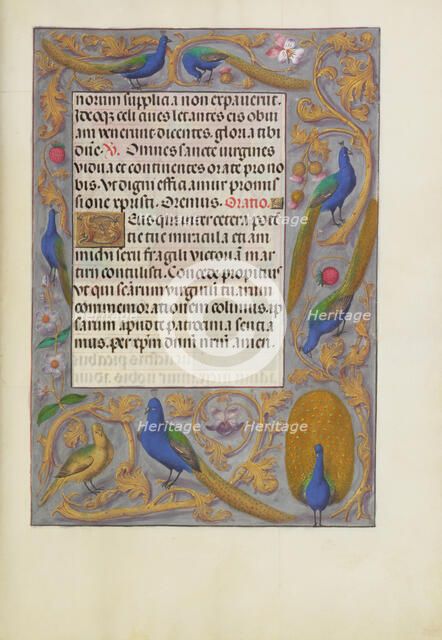 norum supplicia non expaverut.
Ideoqȝ celi cives letantes eis obvi
am venerunt dicentes. gloria tibi
dñe. V. Omnes sancte virgines
vidue et continentes orate pro no
bis. Ut digni efficiamur promis
sione christi. Oremus. Oratio.
Deus qui inter cetera pote
tie tue miracula etiam
in sexu fragili victoriam mar
tirii contulisti. Concede propitius
ut qui scarum virginū tuarum
commemorationem colimus. ip
sarum apud te patrocinia sentia
mus. per xpm dnm nrm. amen.
Heritage
Heritage
Heritage
Heritage
Heritage